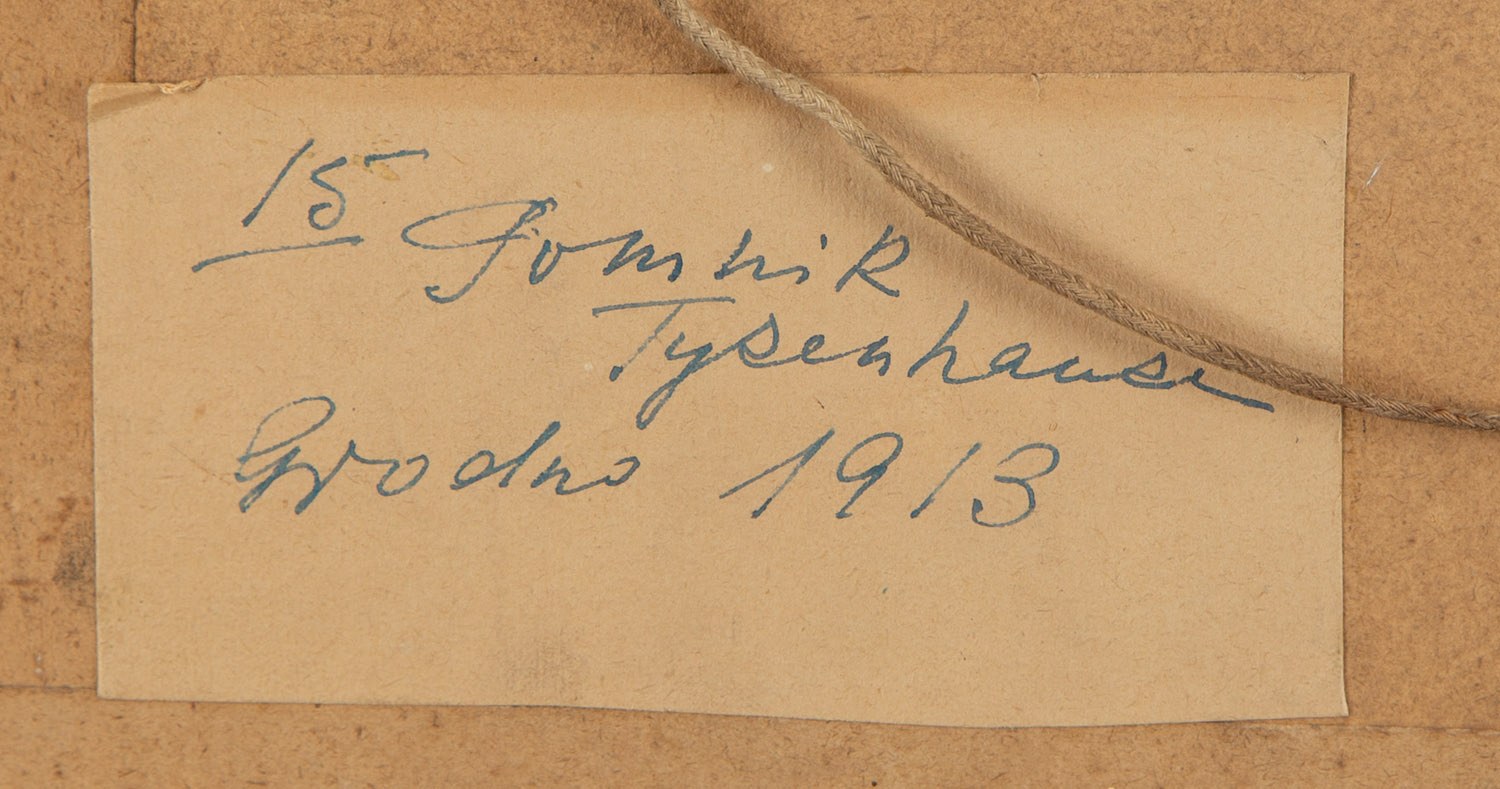 15 Pomnik
Tysenhause
Grodno 1913